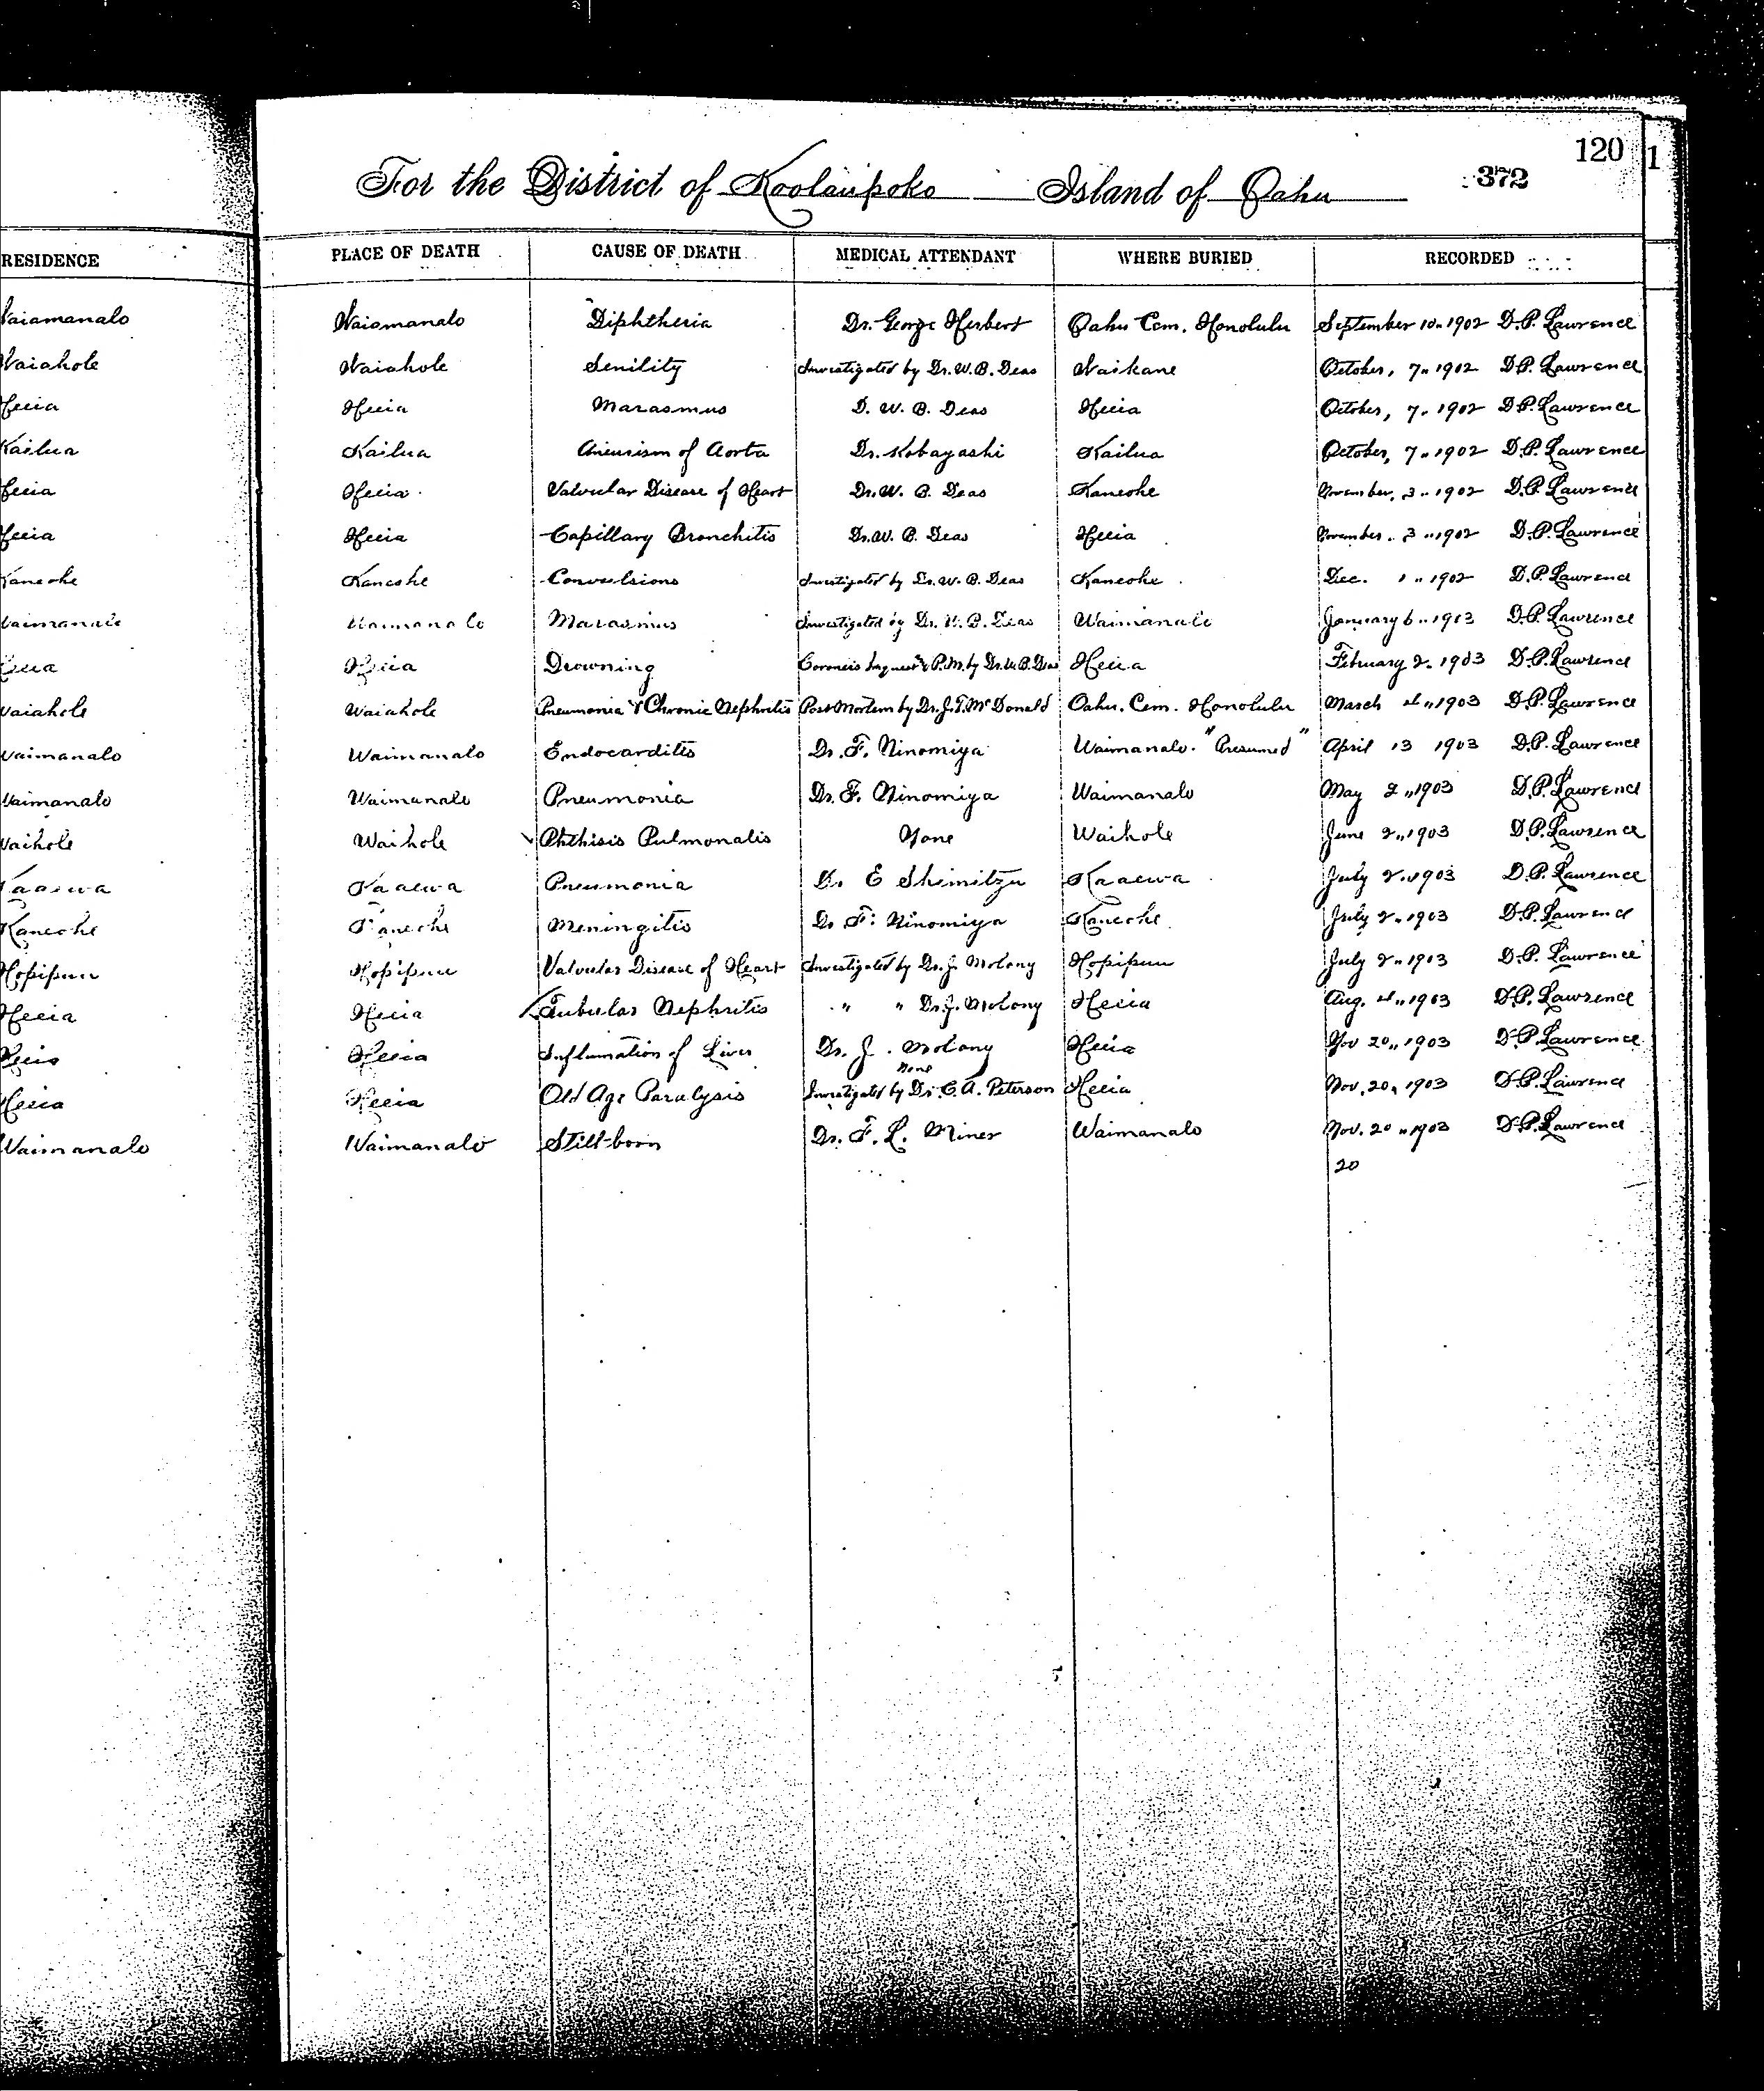 120
1
For the District of Koolaupoko Island of Oahu 372
RESIDENCE PLACE OF DEATH CAUSE OF DEATH MEDICAL ATTENDANT WHERE BURIED RECORDED
Waiamanalo Waiamanalo Diphtheria Dr. George Herbert Oahu Cem. Honolulu September 10 " 1902 D.P. Lawrence
Waiahole Waiahole Senility Investigated by Dr. W. B. Deas Waikane October, 7 " 1902 D.P. Lawrence
Heeia Heeia Marasmus D. W. B. Deas Heeia October, 7 " 1902 D.P. Lawrence
Kailua Kailua Aneurism of Aorta Dr. Kobayashi Kailua October, 7 " 1902 D.P. Lawrence
Heeia Heeia Valvular Disease of Heart Dr. W. B. Deas Kaneohe November, 3 " 1902 D.P. Lawrence
Heeia Heeia Capillary Bronchitis Dr. W. B. Deas Heeia November. 3 " 1902 D.P. Lawrence
Kaneohe Kaneohe Convulsions Investigated by Dr. W. B. Deas Kaneohe Dec. 1 " 1902 D.P. Lawrence
Waimanalo Waimanalo Marasmus Investigated by Dr. W. B. Deas Waimanalo January 6 " 1903 D.P. Lawrence
Heeia Heeia Drowning Coroner's Inquest & P.M. by Dr. W. B. Deas Heeia February 2 " 1903 D.P. Lawrence
Waiahole Waiahole Pneumonia & Chronic Nephritis Post Mortem by Dr. J. T. McDonald Oahu. Cem. Honolulu March 4 " 1903 D.P. Lawrence
Waimanalo Waimanalo Endocarditis Dr. F. Ninomiya Waimanalo. "Presumed" April 13 1903 D.P. Lawrence
Waimanalo Waimanalo Pneumonia Dr. F. Ninomiya Waimanalo May 2 " 1903 D.P. Lawrence
Waihole Waihole Phthisis Pulmonalis None Waihole June 2 " 1903 D.P. Lawrence
Kaaewa Kaaewa Pneumonia Dr. E Shimitzu Kaaewa July 2 " 1903 D.P. Lawrence
Kaneohe Kaneohe Meningitis Dr. F. Ninomiya Kaneohe July 2 " 1903 D.P. Lawrence
Hopipuu Hopipuu Valvular Disease of Heart Investigated by Dr. J. Molony Hopipuu July 2 " 1903 D.P. Lawrence
Heeia Heeia Tubular Nephritis " " Dr. J. Molony Heeia Aug. 4 " 1903 D.P. Lawrence
Heeia Heeia Inflamation of Liver Dr. J. Molony Heeia Nov 20 " 1903 D.P. Lawrence
None
Heeia Heeia Old Age Paralysis Investigated by Dr. C. A. Peterson Heeia Nov. 20 " 1903 D.P. Lawrence
Waimanalo Waimanalo Still-born Dr. F. L. Miner Waimanalo Nov. 20 " 1903 D.P. Lawrence
20